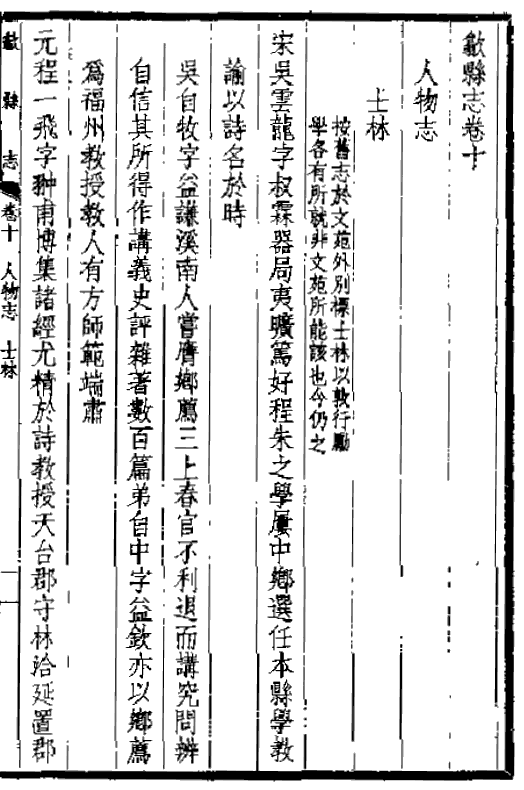 歙縣志卷十
人物志
士林
按舊志於文苑外別標士林以敦行勵
學各有所就非文苑所能該也今仍之
宋吳雲龍字叔霖器局夷曠篤好程朱之學屢中鄉選任本縣學教
諭以詩名於時
吳自牧字益謙溪南人嘗膺鄉薦三上春官不利退而講究問辨
自信其所得作講義史評雜著數百篇弟自中字益欽亦以鄉薦
爲福州教授教人有方師範端肅
元程一飛字翀甫博集諸經尤精於詩教授天台郡守林洽延置郡
歙縣志
卷十 人物志 士林
一